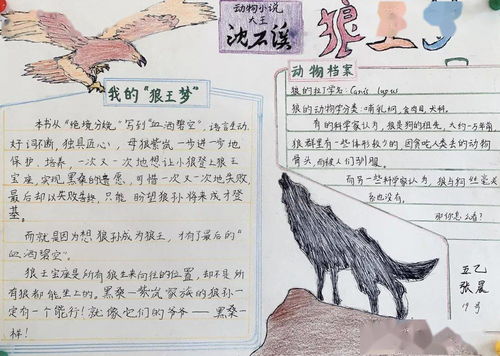 动物小说
大王
沈石溪
狼王梦
我的“狼王梦”
本书从“绝境分娩”写到“血洒碧空”，语言生动
好词不断，独具匠心，母狼紫岚一步一步地
保护，培养，一次又一次地想让小狼登上狼王
宝座，实现黑桑的遗愿，可惜一次又一次地失败
最后却以失败告终，只能盼望狼孙将来成才登
基。
而就是因为想狼孙成为狼王，才有了最后的“
血洒碧空”。
狼王宝座是所有狼王来向往的位置，却不是所
有狼都能坐上的。黑桑—紫岚家族的狼孙一
定有一个能行！就像它们的爷爷——黑桑一
样！
动物档案
狼的拉丁学名：Canis lupus
狼的动物学分类：哺乳柯，食肉目，犬科。
有的科学家认为，狼是狗的祖先，大约一万年前，
狼群里有一些体形较小的，因贪吃人类丢的动物
骨头，而被人们驯服。
而另一些科学家认为，狼与狗丝毫关
系也没有，
那你怎么看？
五乙
张晨
19号